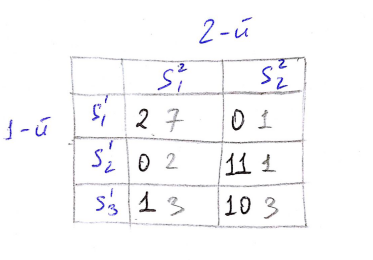 2-й
S₁² S₂²
1-й
S₁¹ 2 7 0 1
S₂¹ 0 2 11 1
S₃¹ 1 3 10 3